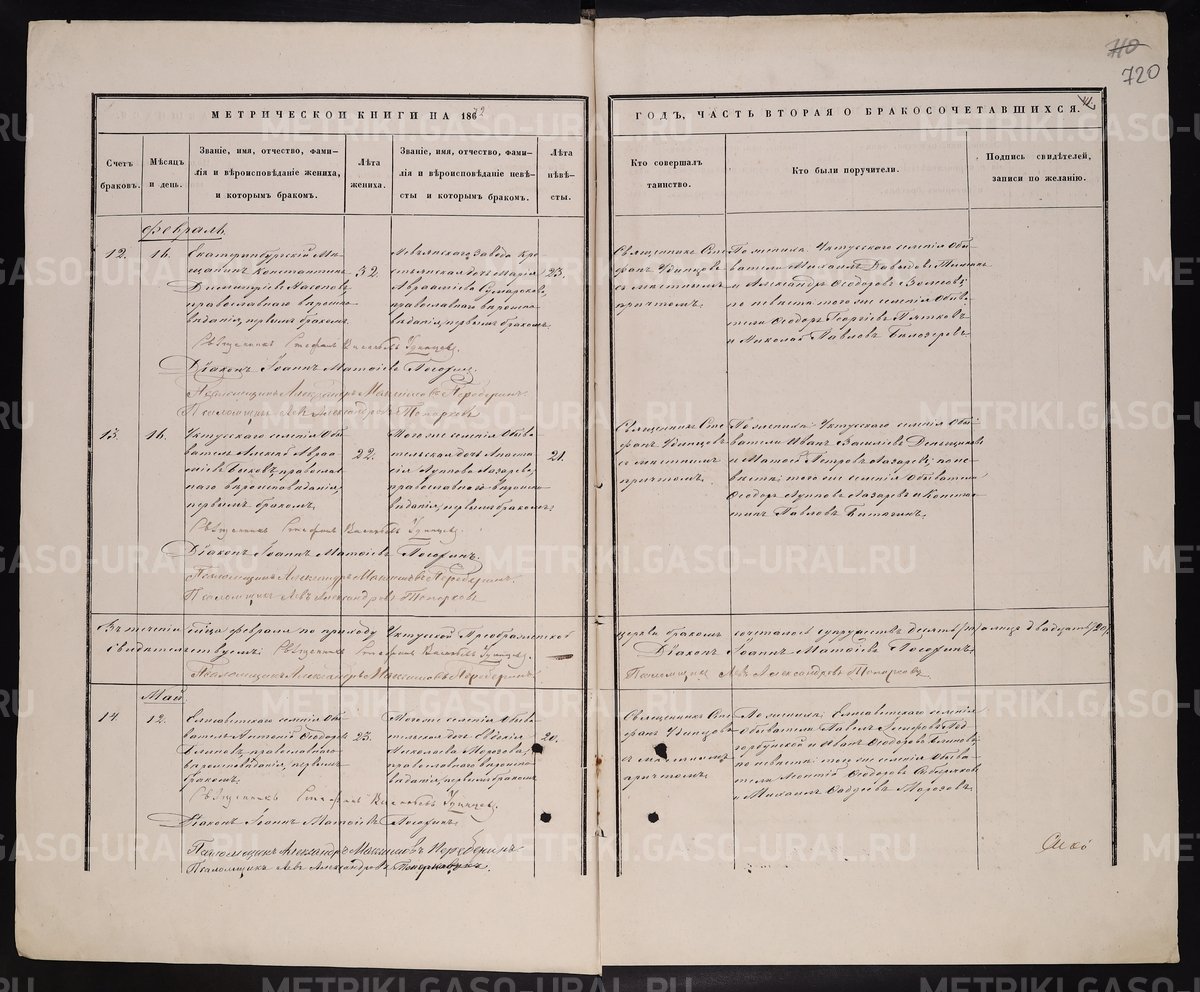 710
720
МЕТРИЧЕСКОЙ КНИГИ НА 1872
ГОДЪ, ЧАСТЬ ВТОРАЯ О БРАКОСОЧЕТАВШИХСЯ.
Счетъ браковъ.
Мѣсяцъ и день.
Званіе, имя, отчество, фами-
лія и вѣроисповѣданіе жениха,
и которымъ бракомъ.
Лѣта жениха.
Званіе, имя, отчество, фами-
лія и вѣроисповѣданіе невѣ-
сты и которымъ бракомъ.
Лѣта невѣ-
сты.
Кто совершалъ
таинство.
Кто были поручители.
Подпись свидѣтелей,
записи по желанію.
Февраль
12.
16.
Екатеринбургскій Мѣ-
щанинъ Константинъ
Димитріевъ Насоновъ
православнаго вѣроиспо-
вѣданія, первымъ бракомъ
32.
Невьянскаго Завода кре-
стьянская дочь Марія
православнаго вѣроиспо-
вѣданія, первымъ бракомъ.
23.
Священникъ Сте-
фанъ Удинцевъ
съ мѣстнымъ
причтомъ.
По женихѣ: Уктусскаго селенія Обы-
ватели Михаилъ Давыдовъ
и Александръ Ѳеодоровъ
по невѣстѣ того же селенія Обыва-
тели Ѳеодоръ Георгіевъ Пятковъ
и Николай Павловъ Бѣлозеровъ.
Священникъ Стефанъ Васильевъ Удинцевъ.
Діаконъ Іоаннъ Матѳіевъ
Псаломщикъ Александръ Максимовъ
Псаломщикъ Левъ Александровъ Топорковъ
13.
16.
Уктусскаго селенія Обы-
ватель Алексѣй Авра-
аміевъ Быковъ, православ-
наго вѣроисповѣданія,
первымъ бракомъ.
22.
Того же селенія Обыва-
тельская дочь Анаста-
сія Луппова Лазарева,
православнаго вѣроиспо-
вѣданія, первымъ бракомъ.
21.
Священникъ Сте-
фанъ Удинцевъ
съ мѣстнымъ
причтомъ.
По женихѣ: Уктусскаго селенія Обы-
ватели Иванъ Василіевъ
и Матѳей Петровъ Лазаревъ; по не-
вѣстѣ: того же селенія Обыватели
Ѳеодоръ Лупповъ Лазаревъ и Констан-
тинъ Павловъ
Священникъ Стефанъ Васильевъ Удинцевъ.
Діаконъ Іоаннъ Матѳіевъ
Псаломщикъ Александръ Максимовъ
Псаломщикъ Левъ Александровъ Топорковъ
Въ теченіи м-ца февраля по приходу Уктусской Преображенской
церкви бракомъ сочеталось супружествъ десять /10/ а лицъ двадцать /20/.
свидѣтельствуемъ: Священникъ Стефанъ Васильевъ Удинцевъ.
Діаконъ Іоаннъ Матѳіевъ
Псаломщикъ Александръ Максимовъ
Псаломщикъ Левъ Александровъ Топорковъ.
Май
14.
12.
Елисаветскаго селенія Обы-
ватель Антоній Ѳеодоровъ
Блиновъ, православнаго
вѣроисповѣданія, первымъ
бракомъ.
23.
Того же селенія Обыва-
тельская дочь Евдокія
Николаева Морозова,
православнаго вѣроиспо-
вѣданія, первымъ бракомъ
20.
Священникъ Сте-
фанъ Удинцевъ
съ мѣстнымъ
причтомъ.
По женихѣ: Елисаветскаго селенія
Обыватели Павелъ
и Иванъ Ѳеодоровъ Блиновъ;
по невѣстѣ: того же селенія Обыва-
тели Леонтій Ѳеодоровъ
и Михаилъ Морозовъ.
Священникъ Стефанъ Васильевъ Удинцевъ.
Діаконъ Іоаннъ Матѳіевъ
Псаломщикъ Александръ Максимовъ
Псаломщикъ Левъ Александровъ Топорковъ.
METRIKI.GASO-URAL.RU